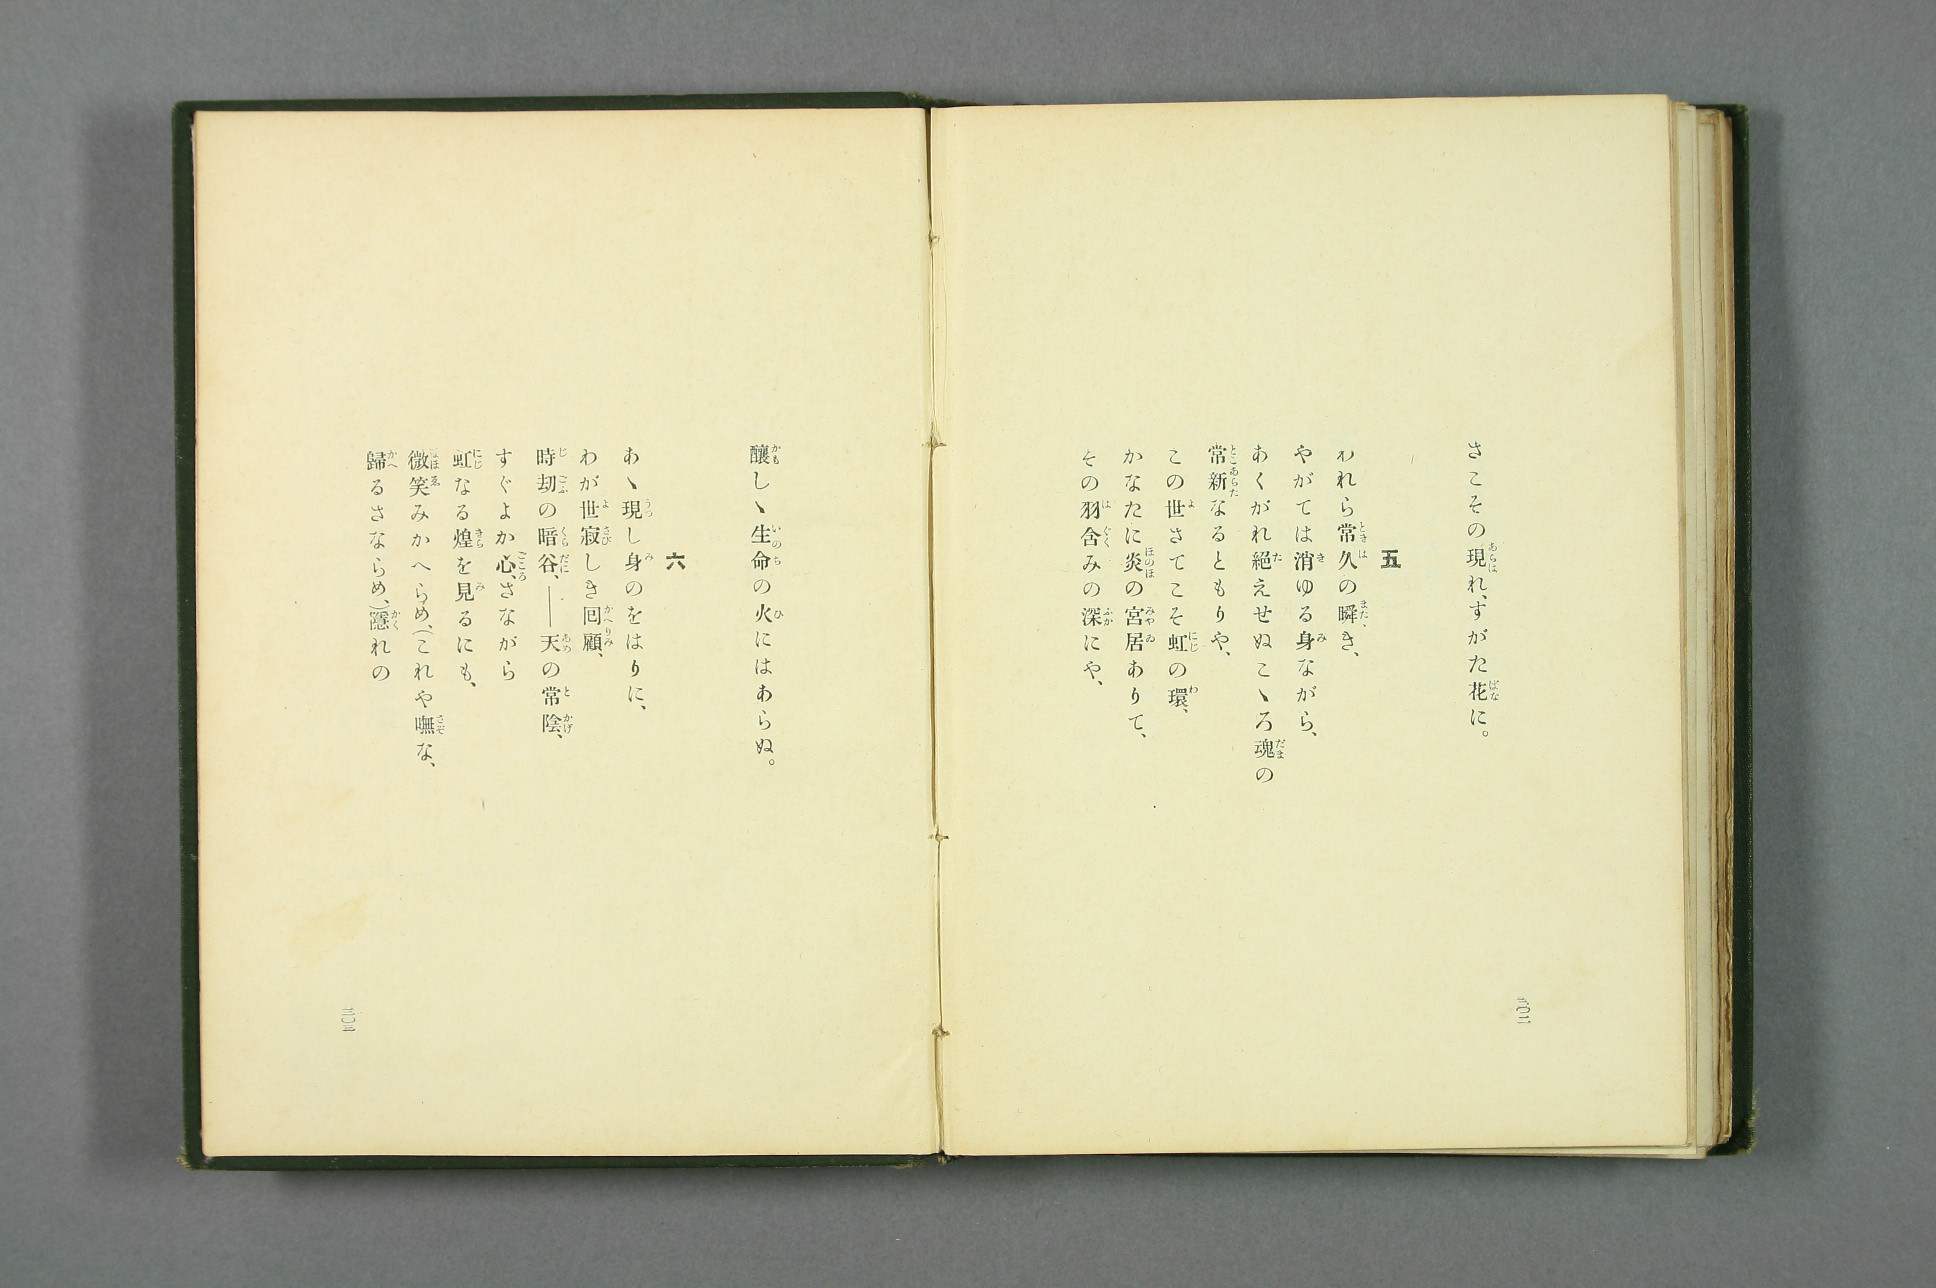 さこその現れ、すがた花に。
五
われら常久の瞬き、
やがては消ゆる身ながら、
あくがれ絶えせぬこゝろ魂の
常新なるともりや、
この世さてこそ虹の環、
かなたに炎の宮居ありて、
その羽含みの深にや、
三〇二
醸しゝ生命の火にはあらぬ。
六
あゝ現し身のをはりに、
わが世寂しき囘顧、
時刧の暗谷、――天の常陰、
すぐよか心、さながら
虹なる煌を見るにも、
微笑みかへらめ、(これや嘸な、
歸るさならめ、)隱れの
三〇三